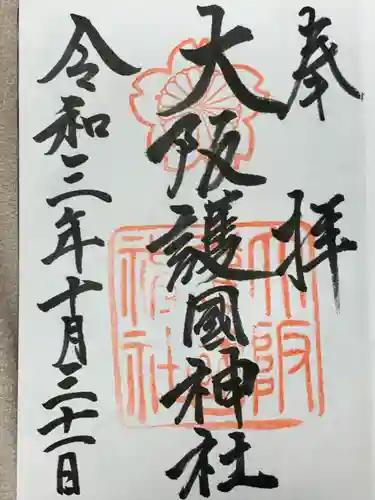 奉拝
大阪護國神社
令和三年十月三十一日